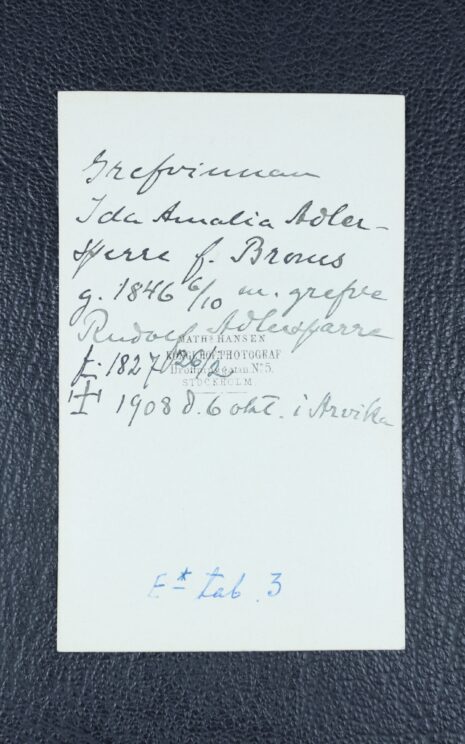 Grefvinnan
Ida Amalia Adler-
sparre f. Broms
g. 1846 6/10 m. grefve
Rudolf Adlersparre
MATH: HANSEN
KONGL. HOF. PHOTOGRAF
f. 1827 26/2
Drottninggatan. No. 5.
STOCKHOLM.
1908 d. 6 okt. i Arvika
E* tab. 3